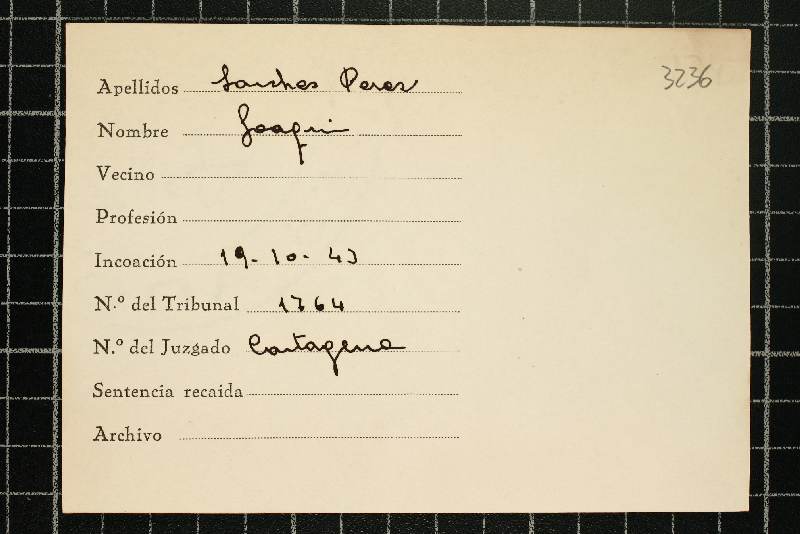 3236
Apellidos Sanches Peres
Nombre Joaquin
Vecino
Profesión
Incoación 19-10-43
N.º del Tribunal 1764
N.º del Juzgado Cartagena
Sentencia recaida
Archivo